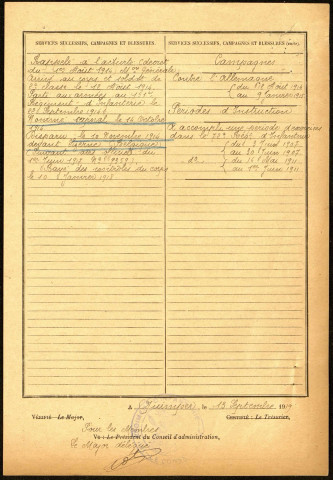 SERVICES SUCCESSIFS, CAMPAGNES ET BLESSURES.
Rappelé à l'activité (décret
du 1er Août 1914) Mon Générale
Arrivé au corps et soldat de
2e classe le 12 Août 1914.
Parti aux armées au
Régiment d'Infanterie le
Septembre 1914
Nommé Caporal le 16 Octobre
1914
Disparu le 10 Novembre 1914
devant (Belgique)
Suivant avis du
1er Juin 1915
Rayé des contrôles du corps
le 10 Janvier 191
SERVICES SUCCESSIFS, CAMPAGNES ET BLESSURES (suite).
Campagnes
Contre l'Allemagne
du 12 Août 1914
au 9 Janvier 191
Périodes d'Instruction
A accompli une période d'exercices
dans le Régt d'Infanterie
du 3 Juin 1907
au 30 Juin 1907
du 16 Mai 1911
au 1er Juin 1911
A Quimper, le 13 Septembre 191
Vérifié : Le Major,
Contrôlé : Le Trésorier,
Pour les Membres
Vu : Le Président du Conseil d'administration,
Le Major délégué